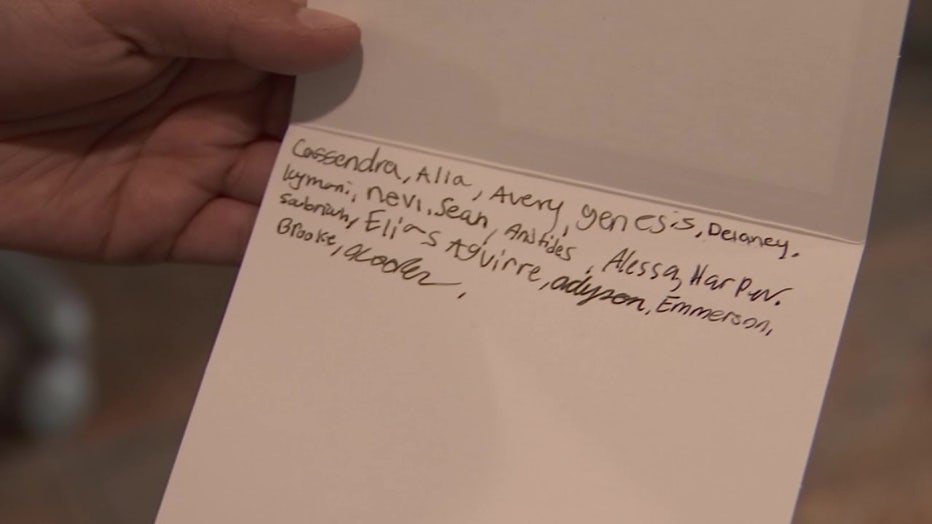 Cassendra, Alia, Avery, genesis, Delaney.
kymani, nevi. Sean, Aristides, Alessa, Harper.
sabriah, Elias Aguirre, adyson, Emmerson,
Brooke,